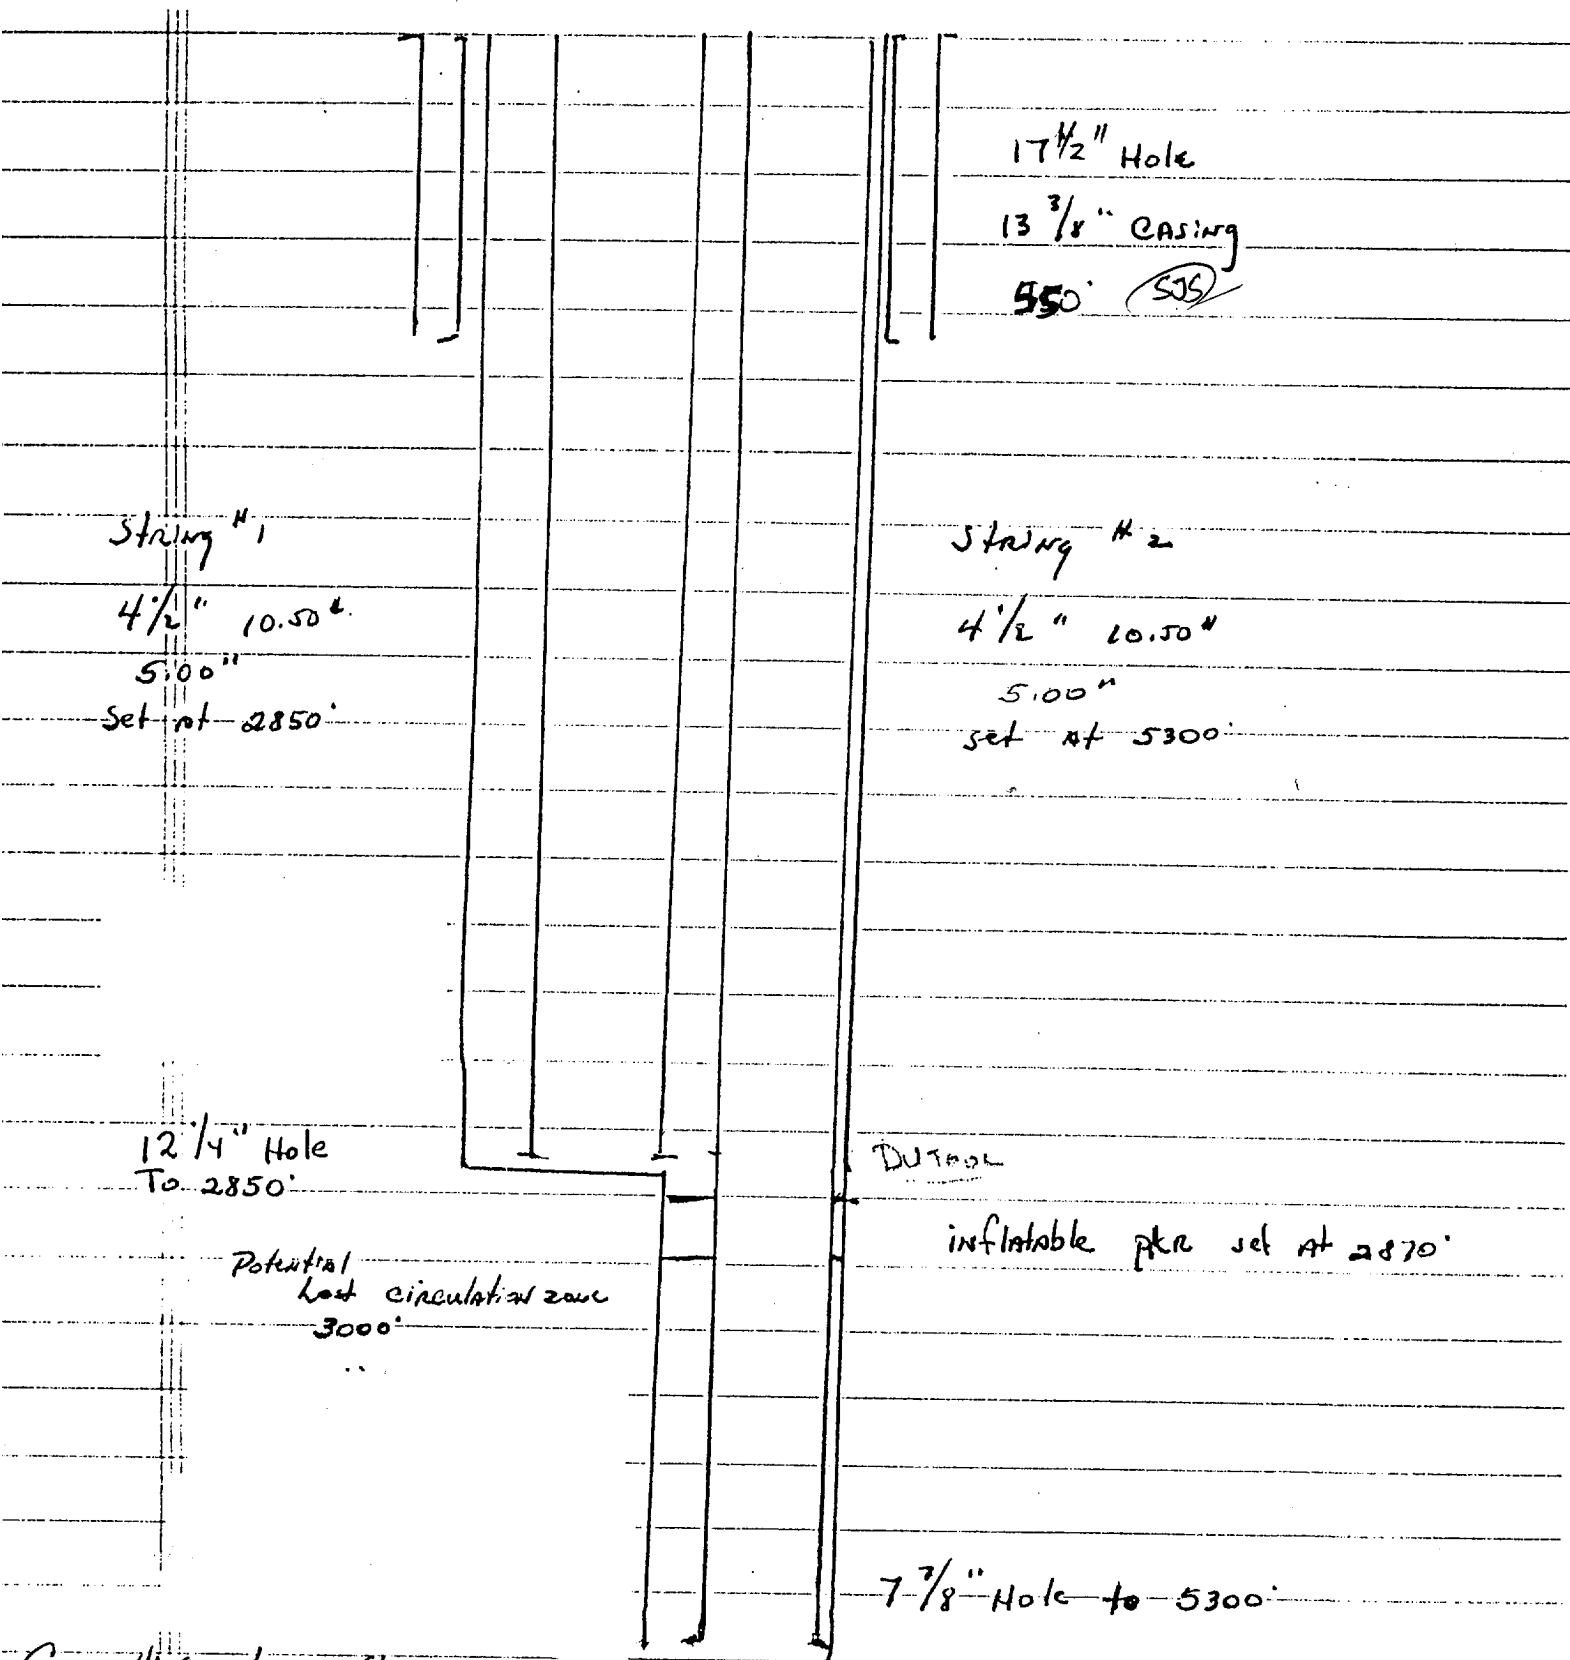 17 1/2" Hole
13 3/8" Casing
550' SJS
String #1
4 1/2" 10.50#
5.00"
Set at 2850'
String #2
4 1/2" 10.50#
5.00"
set at 5300'
12 1/4" Hole
To 2850'
DV TOOL
inflatable pkr set at 2870'
Potential
Lost circulation zone
3000'
7 7/8" Hole to 5300'